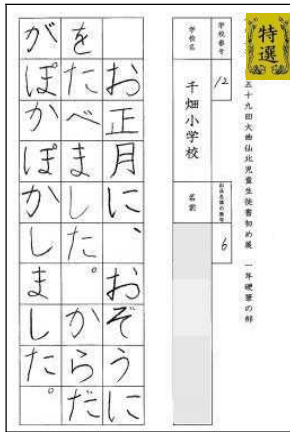 特選
五十九回大曲仙北児童生徒書初め展　一年硬筆の部
学校番号
12
学校名
千畑小学校
出品名簿の番号
6
名前
お正月に、おぞうに
をたべました。からだ
がぽかぽかしました。